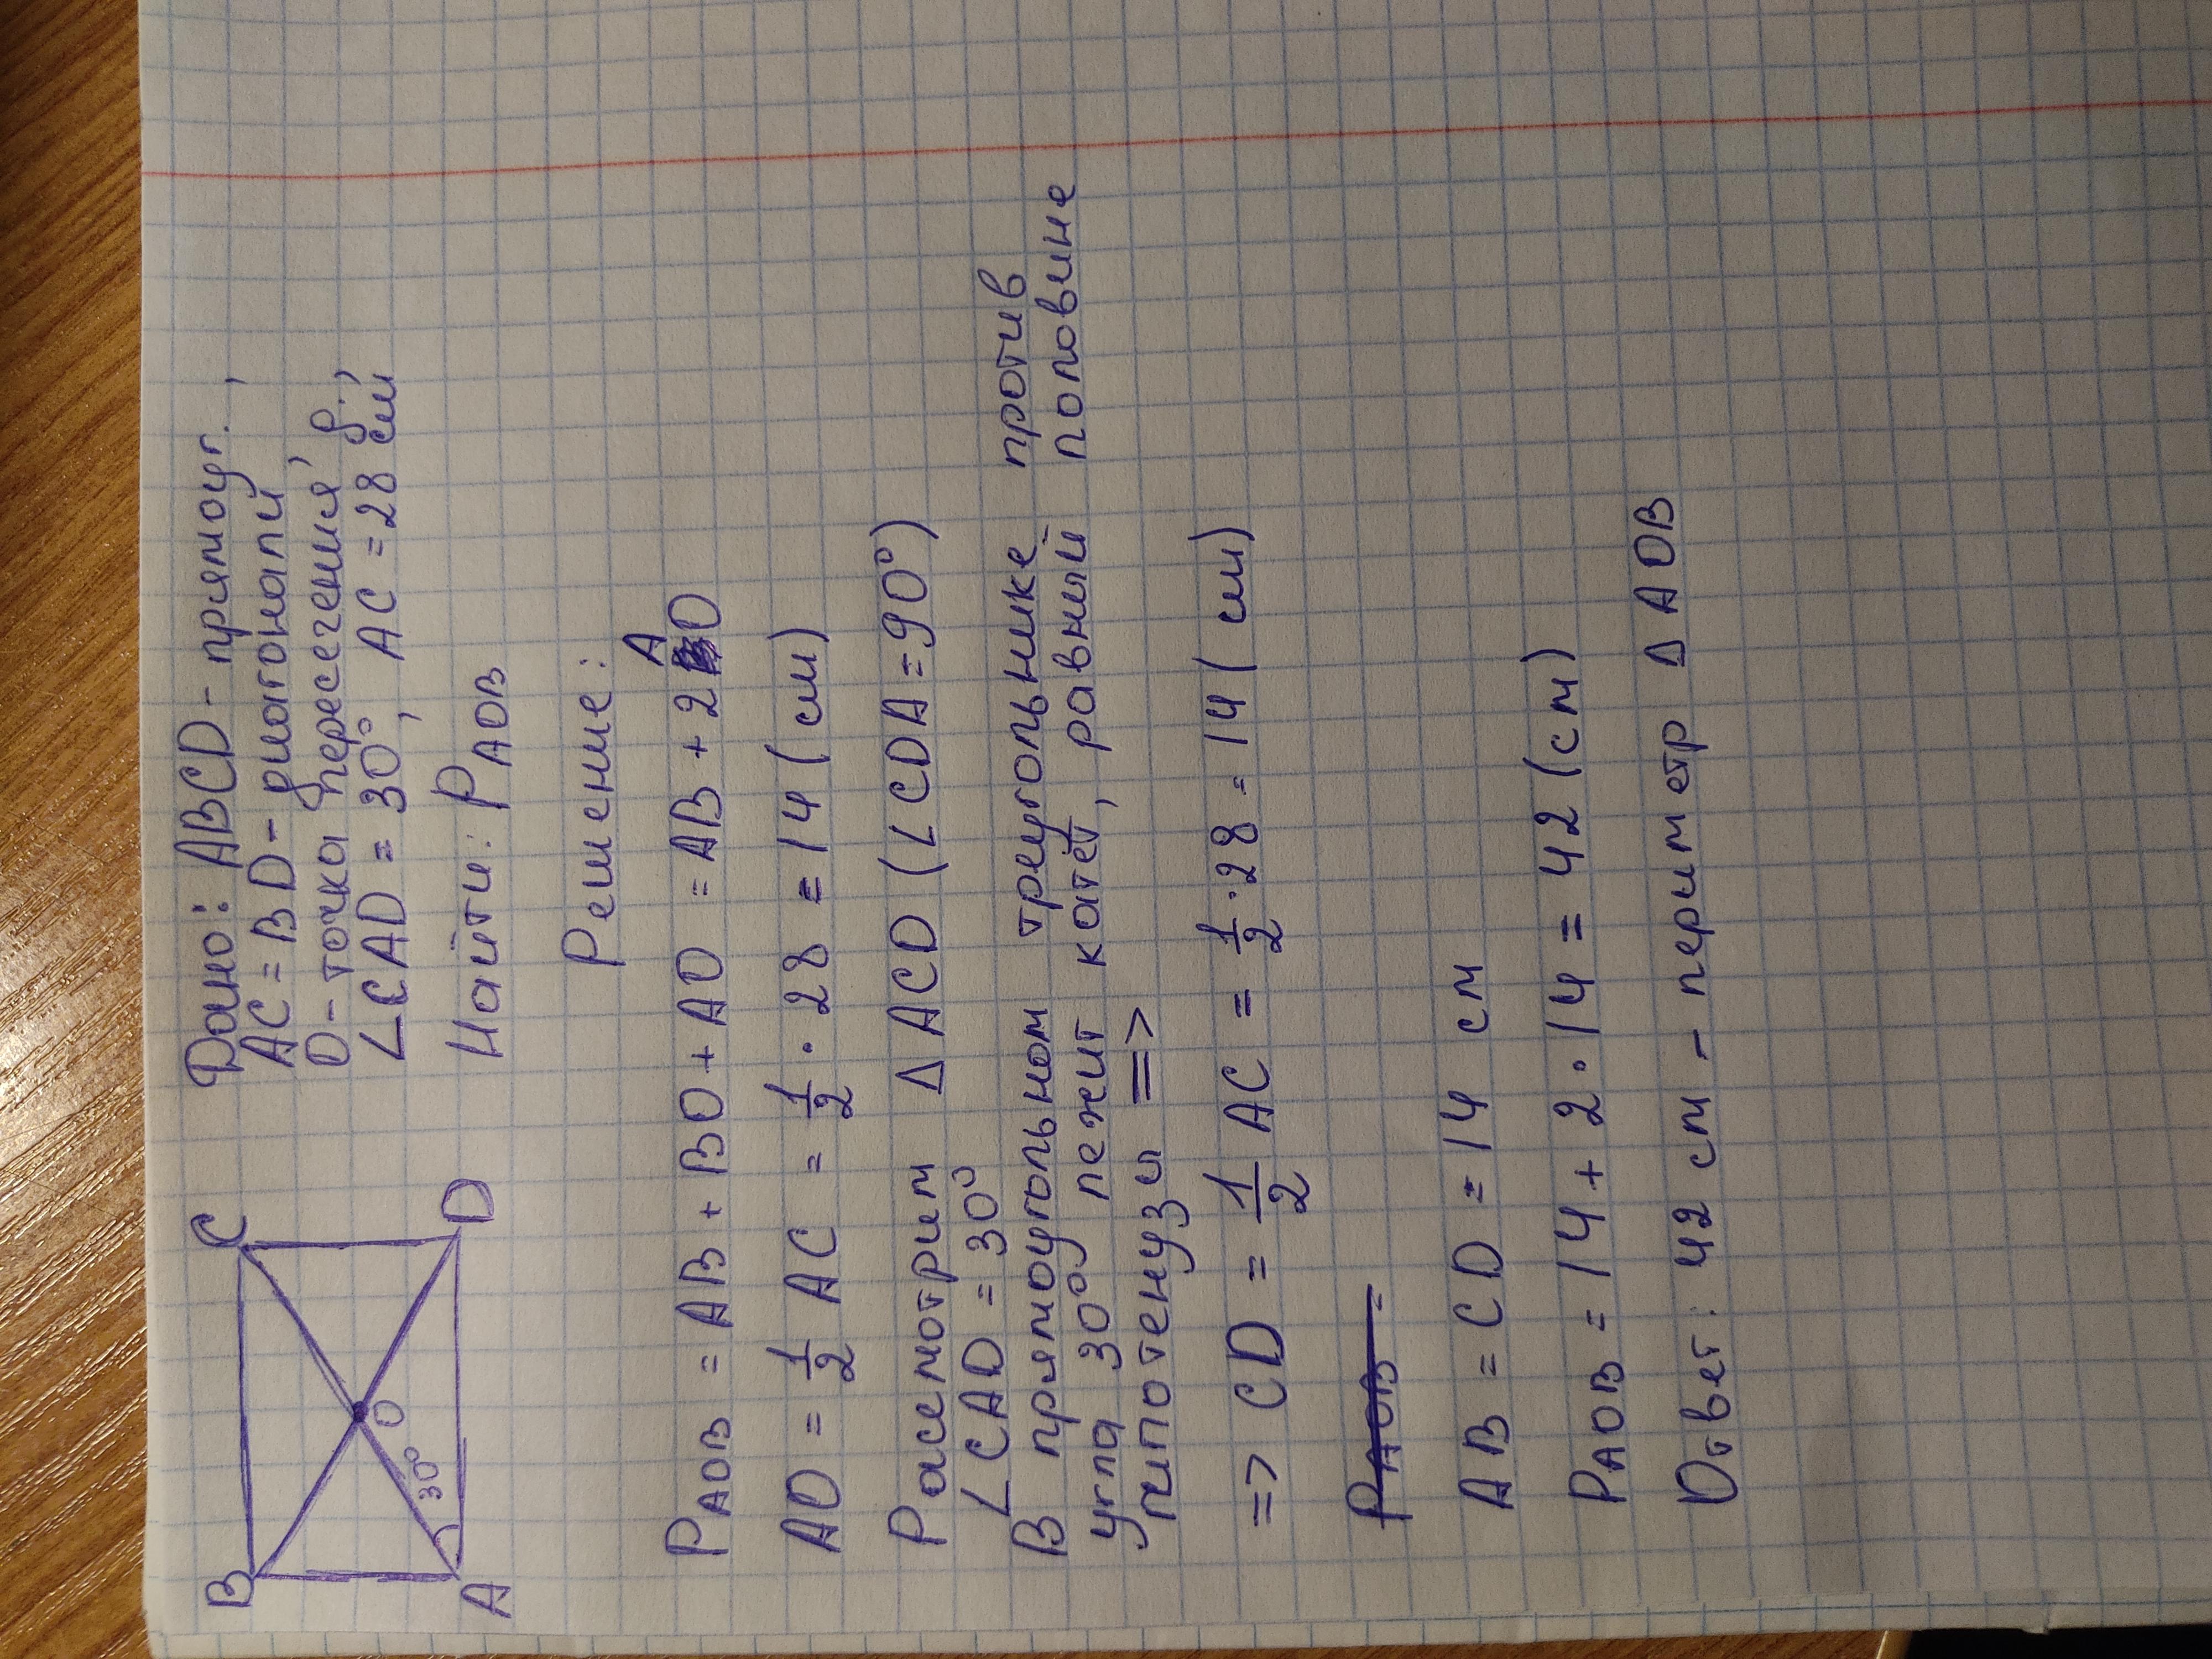 B C
O
30°
A D
Дано: ABCD - прямоуг.,
AC = BD - диагонали,
O - точка пересечения д.,
∠CAD = 30°, AC = 28 см
Найти: P AOB
Решение:
P AOB = AB + BO + AO = AB + 2AO
AO = 1/2 AC = 1/2 · 28 = 14 (см)
Расемотрим Δ ACD (∠CDA = 90°)
∠CAD = 30°
В прямоугольном треугольнике против
угла 30° лежит катет, равный половине
гипотенузы =>
=> CD = 1/2 AC = 1/2 · 28 = 14 (см)
P AOB =
AB = CD = 14 см
P AOB = 14 + 2 · 14 = 42 (см)
Ответ: 42 см - периметр Δ AOB